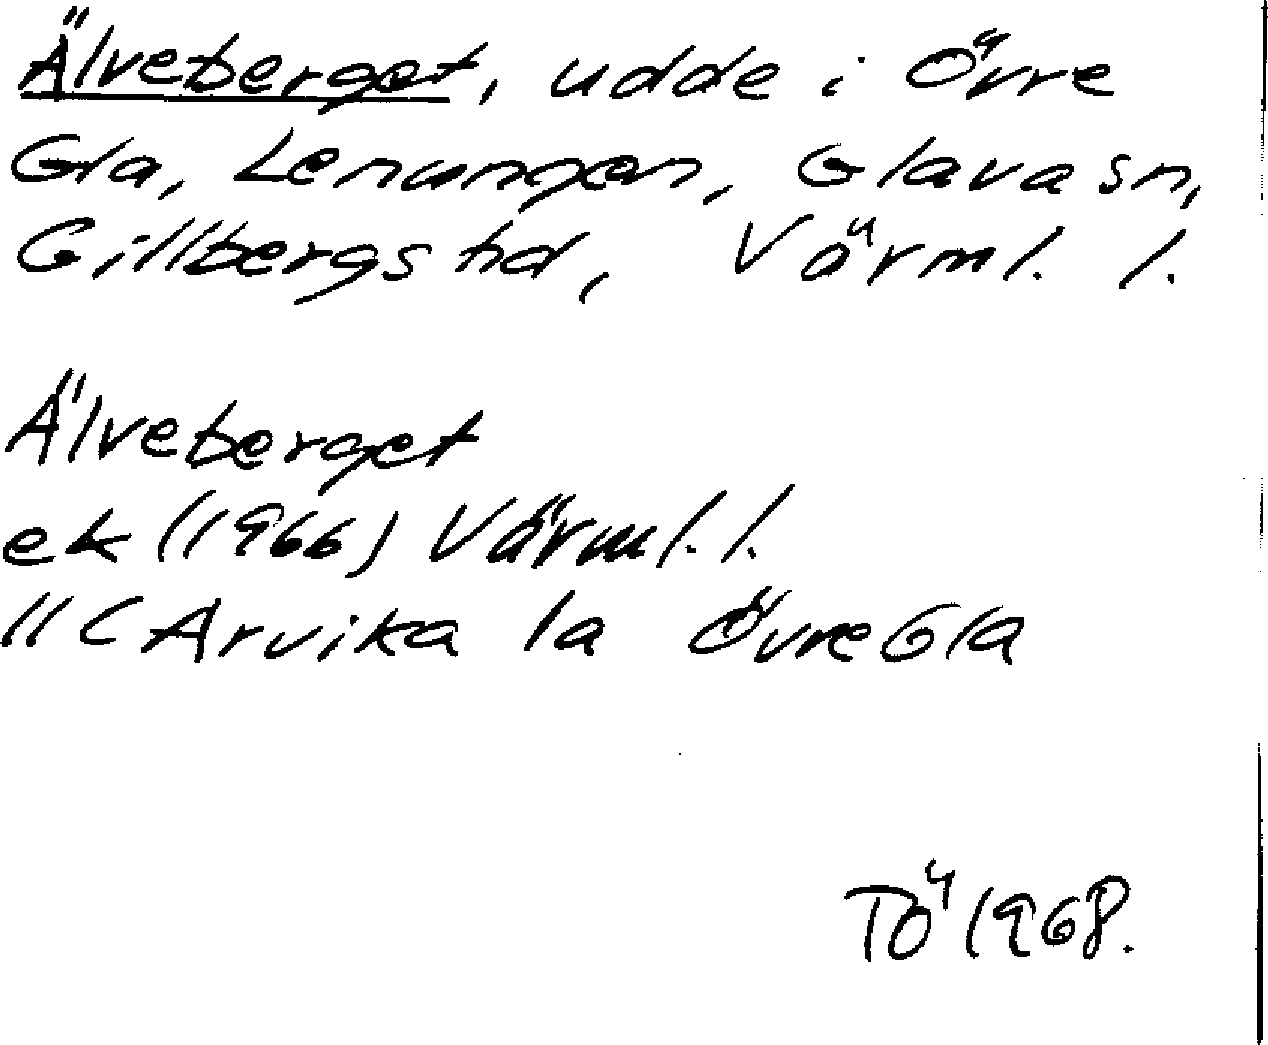 Älveberget, udde i Övre
Gla, Lenungen, Glava sn,
Gillbergs hd, Värml. l.
Älveberget
ek (1966) Värml. l.
11 C Arvika 1a Övre Gla
TÖ 1968.